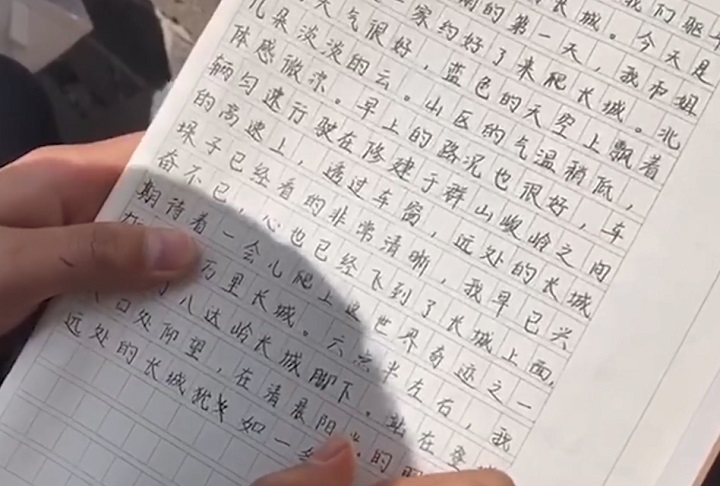 我们驱车
长城。今天是
期的第一天，我和姐
家约好了来爬长城。北
天气很好，蓝色的天空上飘着
几朵淡淡的云。山区的气温稍低，
体感微凉。早上的路况也很好，车
辆匀速行驶在修建于群山峻岭之间
的高速上，透过车窗，远处的长城
垛子已经看的非常清晰，我早已兴
奋不已，心也已经飞到了长城上面，
期待着一会儿爬上这世界奇迹之一
万里长城。六点半左右，我
八达岭长城脚下。站在登
口处仰望，在清晨阳光的
远处的长城犹如一